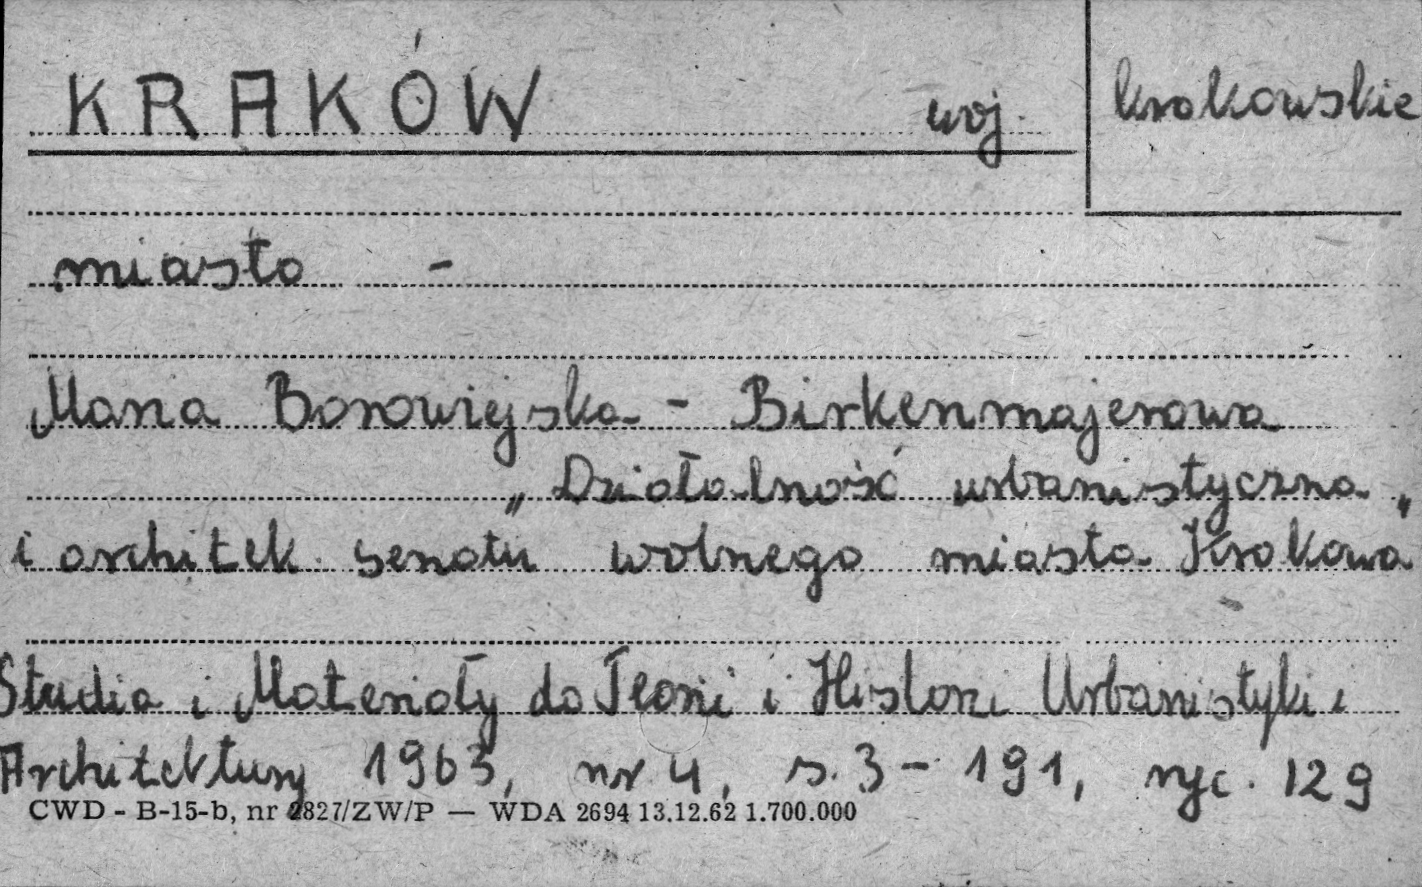 KRAKÓW woj. krakowskie
miasto -
Maria Borowiejska - Birkenmajerowa
„Działalność urbanistyczna
i architek. senatu wolnego miasta Krakowa"
Studia i Materiały do Teorii i Historii Urbanistyki i
Architektury 1963, nr 4, s. 3 - 191, ryc. 129
CWD - B-15-b, nr 2827/ZW/P — WDA 2694 13.12.62 1.700.000